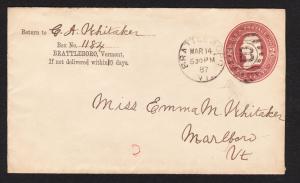 Return to G. A. Whitaker
Box No. 1184
BRATTLEBORO, Vermont.
If not delivered within 10 days.
BRATTLEBORO
MAR 14
630 PM
87
VT.
Miss Emma M. Whitaker
Marlboro
Vt